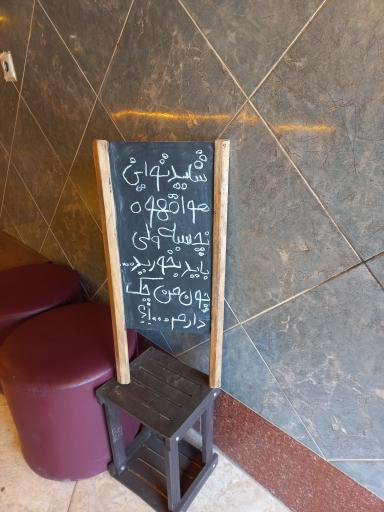 شاید تو این
هوا قهوه
نچسبه ولی
باید بخورید...
چون من چک
دارم...!؟